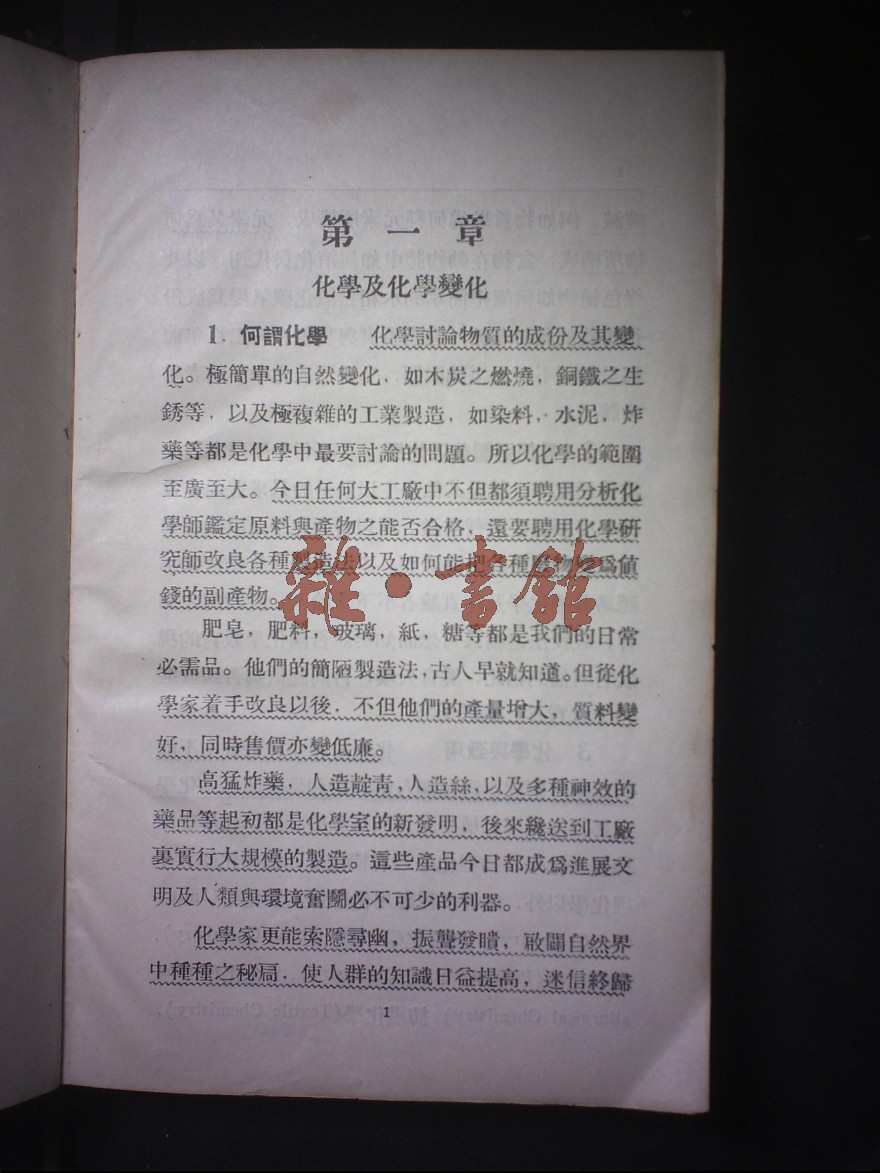 第一章
化學及化學變化
1. 何謂化學 化學討論物質的成份及其變
化。極簡單的自然變化，如木炭之燃燒，銅鐵之生
銹等，以及極複雜的工業製造，如染料，水泥，炸
藥等都是化學中最要討論的問題。所以化學的範圍
至廣至大。今日任何大工廠中不但都須聘用分析化
學師鑑定原料與產物之能否合格，還要聘用化學研
究師改良各種製造法以及如何能把各種廢物變爲値
錢的副產物。
雜·書館
肥皂，肥料，玻璃，紙，糖等都是我們的日常
必需品。他們的簡陋製造法，古人早就知道。但從化
學家着手改良以後，不但他們的產量增大，質料變
好，同時售價亦變低廉。
高猛炸藥，人造靛青，人造絲，以及多種神效的
藥品等起初都是化學室的新發明，後來纔送到工廠
裏實行大規模的製造。這些產品今日都成爲進展文
明及人類與環境奮鬭必不可少的利器。
化學家更能索隱尋幽，振聾發瞶，敢闢自然界
中種種之秘扃，使人群的知識日益提高，迷信終歸
1